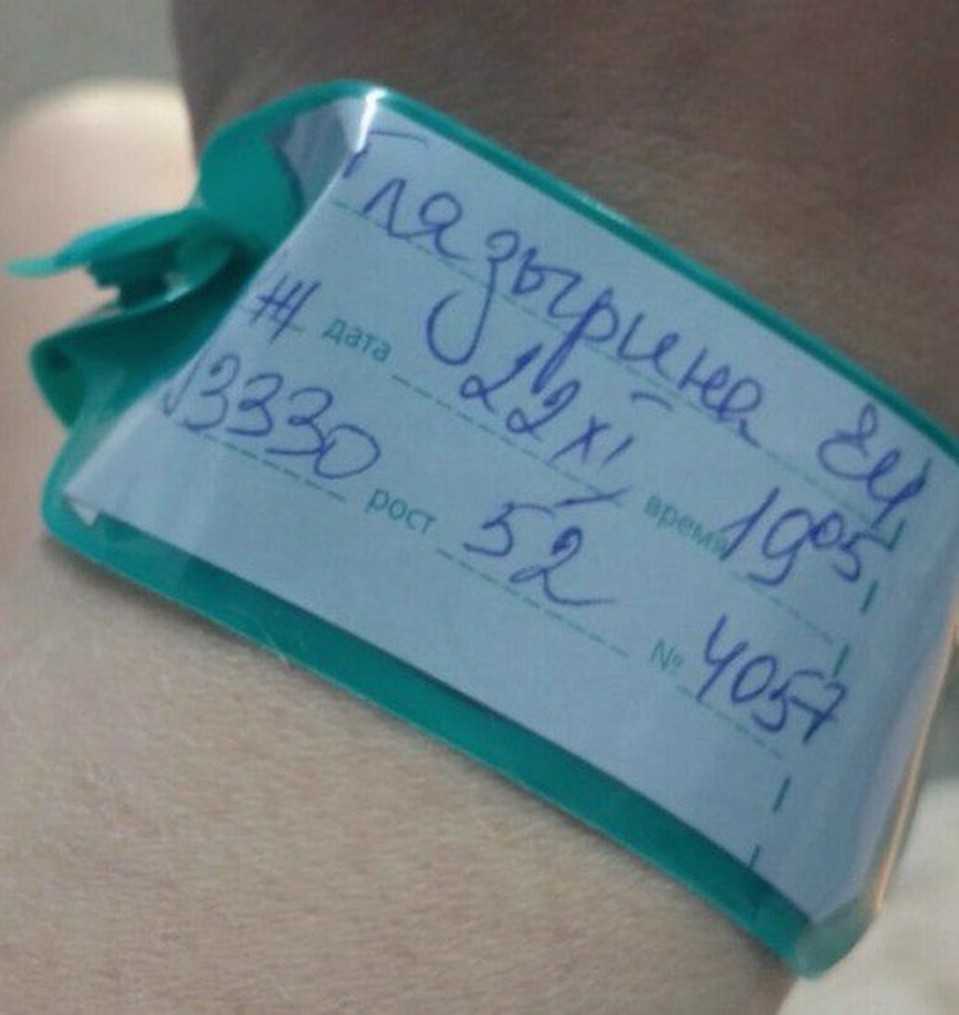 Глязырина ЕЧ
Ж дата 22 XI время 19 05
3330 рост 52 № 4057